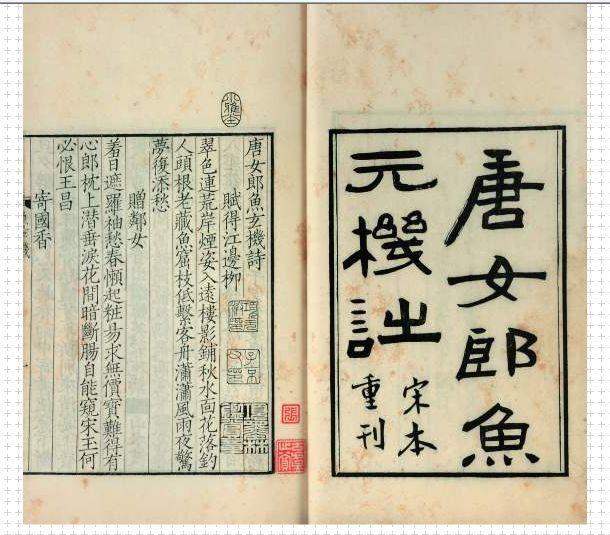 唐女郎魚
元機詩
宋本
重刊
唐女郎魚玄機詩
賦得江邊柳
翠色連荒岸煙姿入遠樓影鋪秋水面花落釣
人頭根老藏魚窟枝低繫客舟瀟瀟風雨夜驚
夢復添愁
贈鄰女
羞日遮羅袖愁春懶起粧易求無價寶難得有
心郎枕上潛垂淚花間暗斷腸自能窺宋玉何
必恨王昌
寄國香